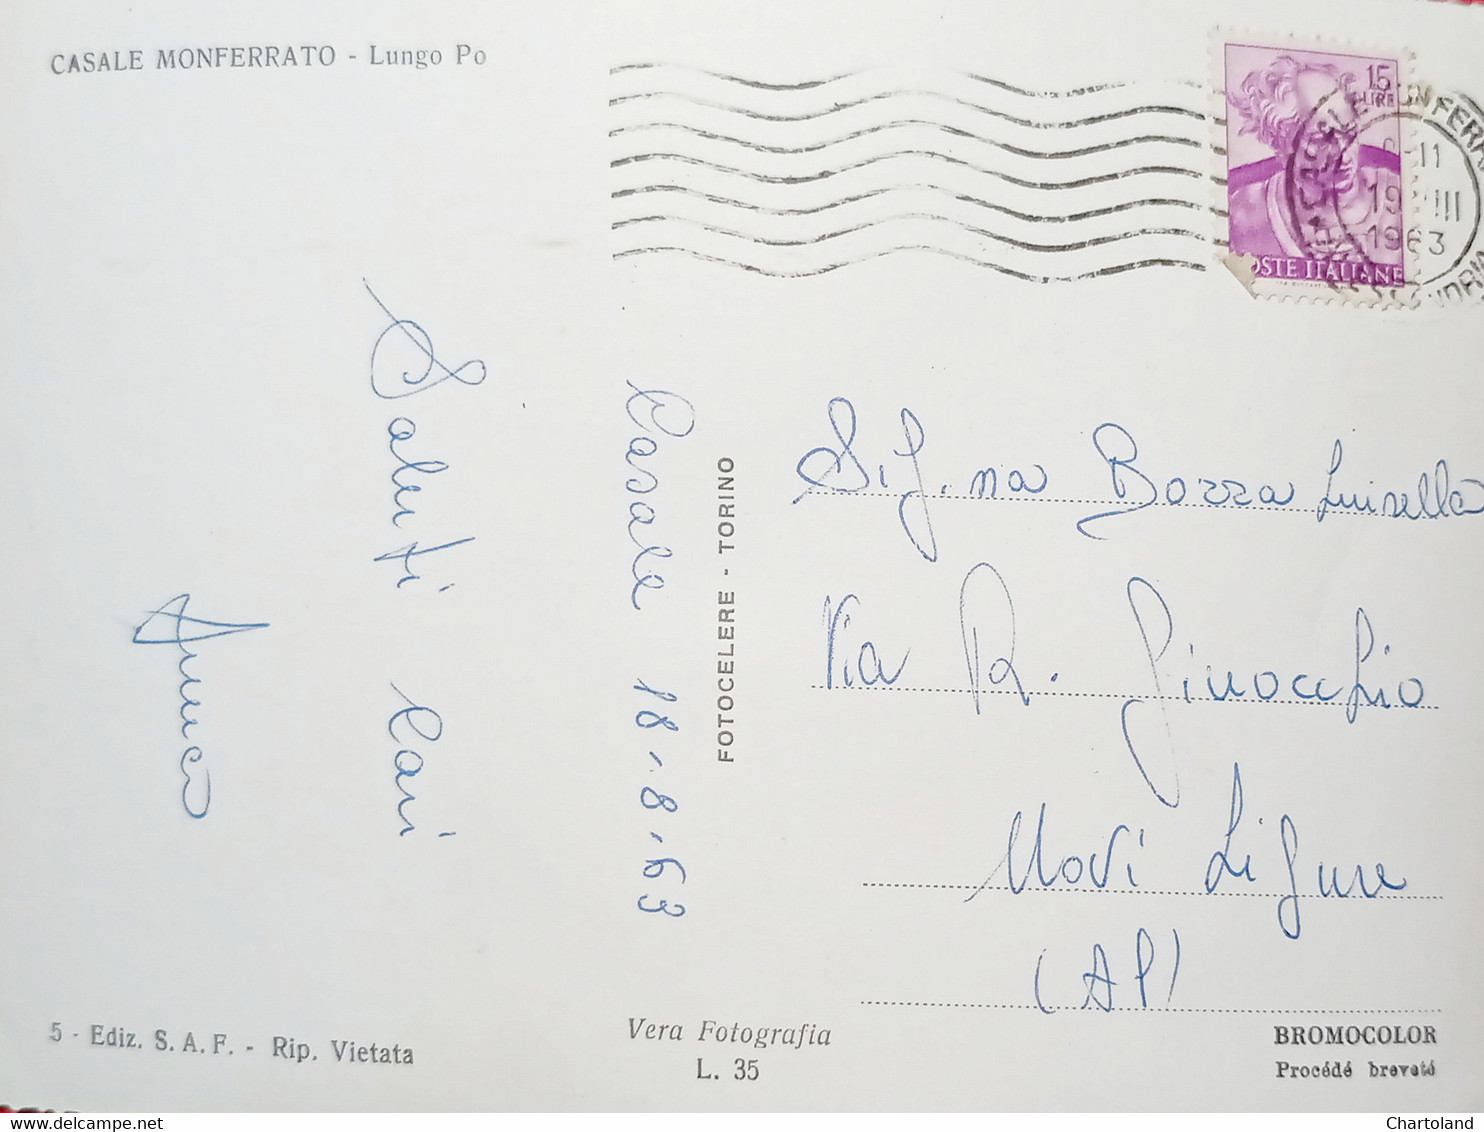 CASALE MONFERRATO - Lungo Po
15
LIRE
POSTE ITALIANE
1963
Saluti Cari
Anna
Casale 18-8-63
FOTOCELERE - TORINO
Sig.na Bozza Luisella
Via R. Ginocchio
Novi Ligure
(AL)
5 - Ediz. S. A. F. - Rip. Vietata
Vera Fotografia
L. 35
BROMOCOLOR
Procédé breveté
Chartoland